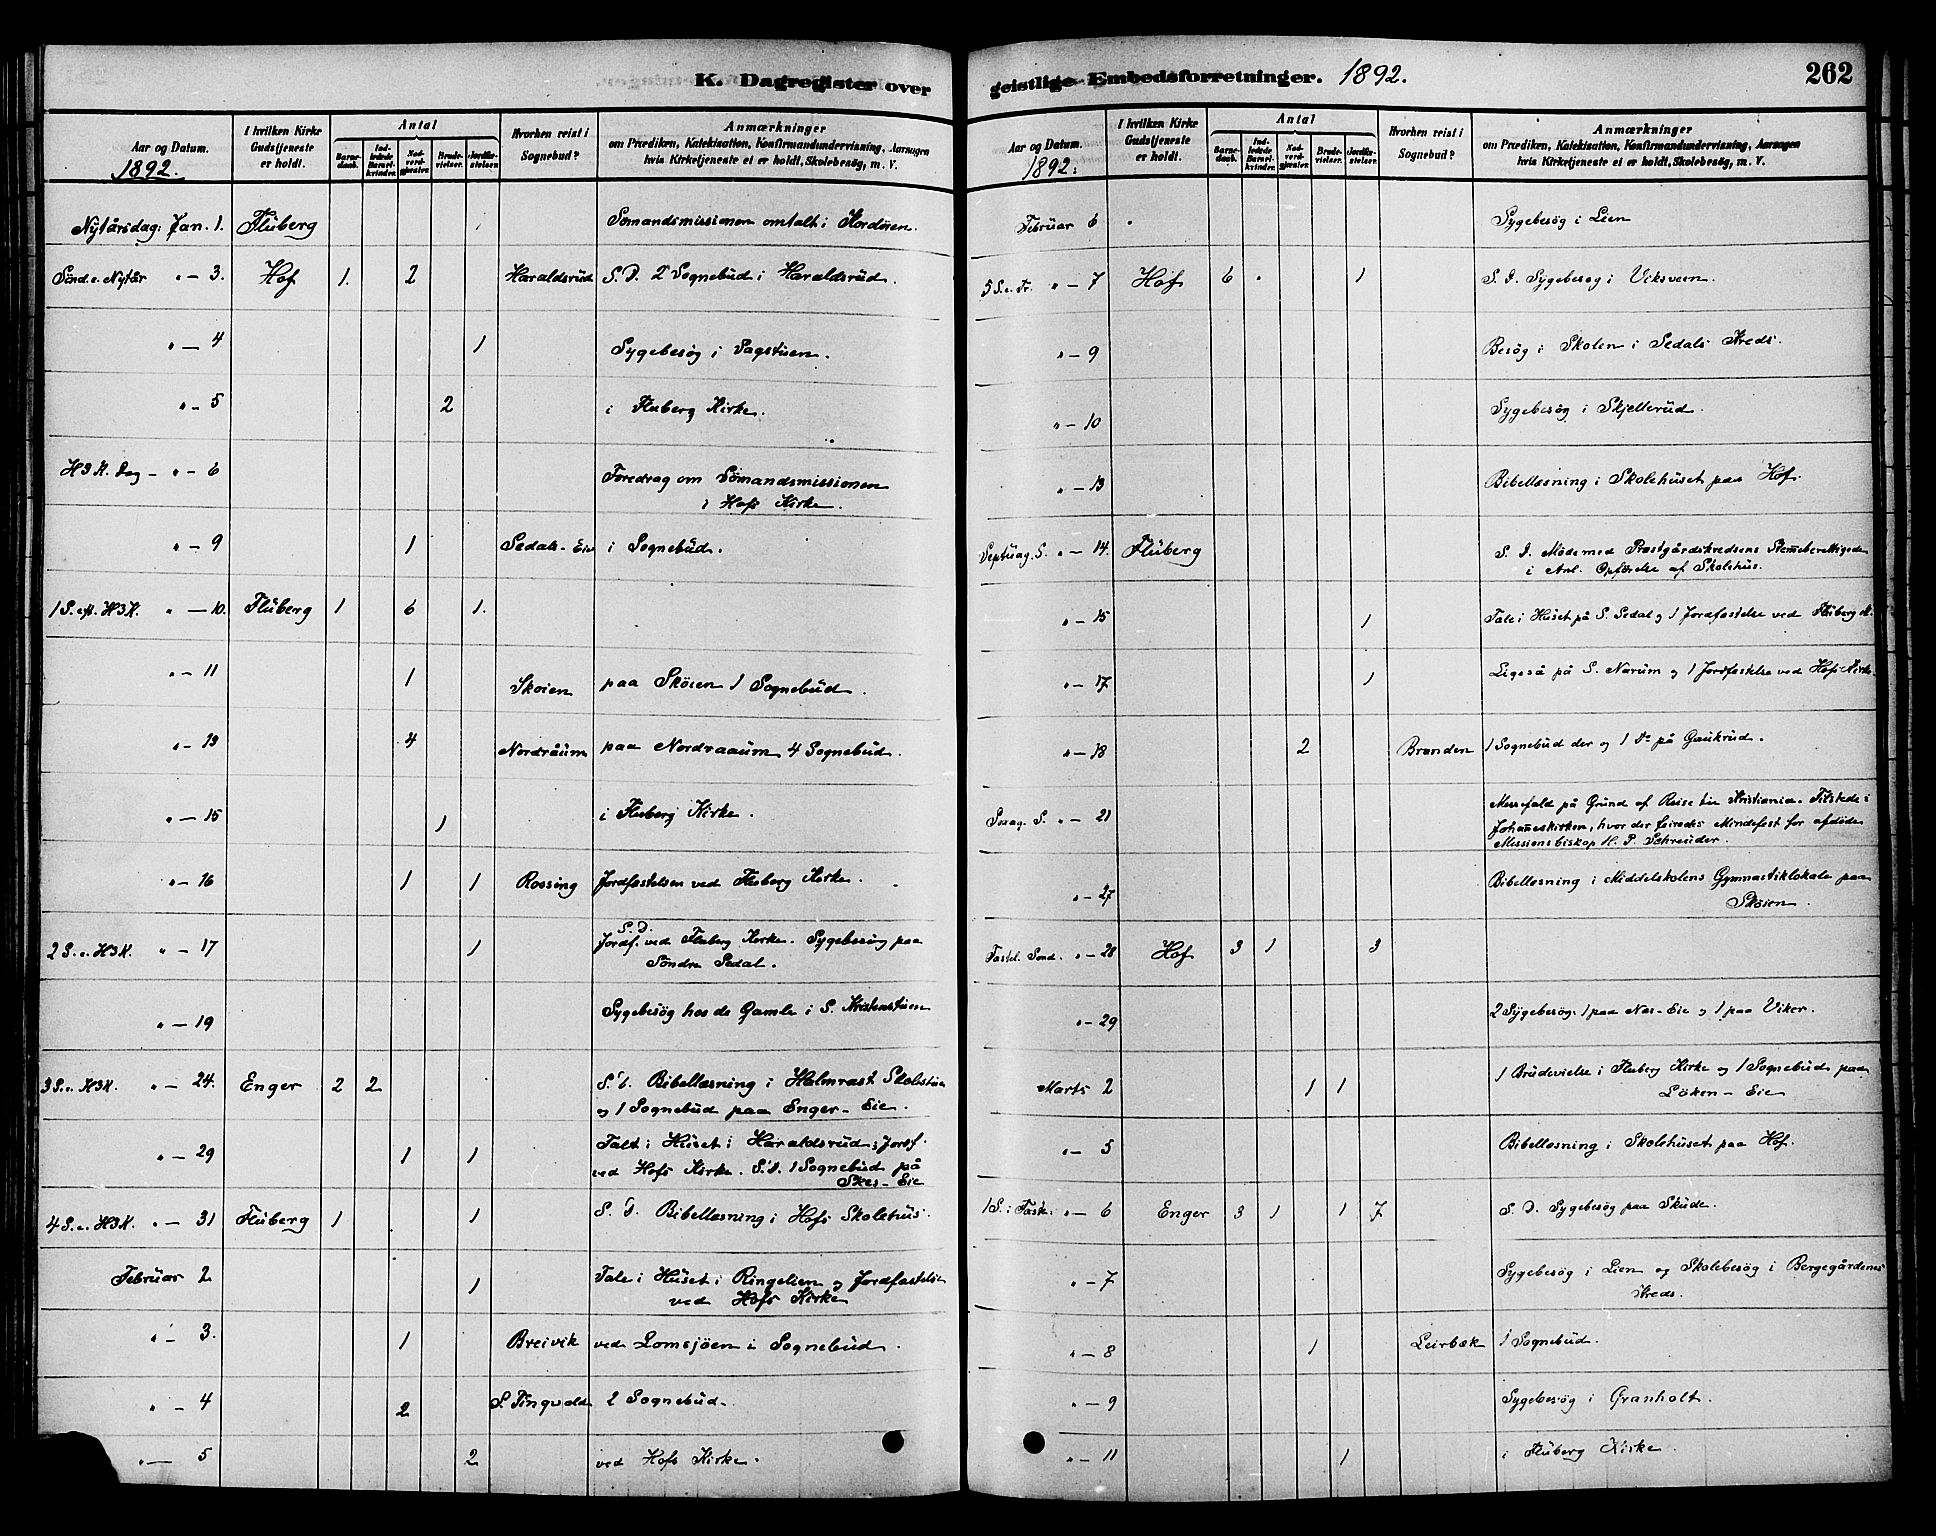 K. Dagregister over
Aar og Datum.
1892.
I hvilken Kirke Gudstjeneste er holdt.
Antal
Barnedaab.
Indledede Barselkvinder.
Nadverdgjæster.
Brudevielser.
Jordfæstelser.
Hvorhen reist i Sognebud?
Anmærkninger
om Prædiken, Katekisation, Konfirmandundervisning, Aarsagen
hvis Kirketjeneste ei er holdt, Skolebesøg, m. V.
Nytårsdag: Jan. 1. Fluberg Sømandsmissionen omtalt i Kordøren.
Sønd. e. Nytår " — 3. Hof 1. 2 Haraldsrud S. D. 2 Sognebud i Haraldsrud.
" — 4 1 Sygebesøg i Sagstuen.
" — 5 2 i Fluberg Kirke.
H 3 K. Dag — " — 6 Foredrag om Sømandsmissionen
i Hofs Kirke.
" — 9 1 Sedals - Eie i Sognebud.
1 S. eft. H3K. " — 10. Fluberg 1 6 1.
" — 11 1 Skøien paa Skøien 1 Sognebud.
" — 13 4 Nordråum paa Nordraaum 4 Sognebud.
" — 15 1 i Fluberg Kirke.
" — 16 1 1 Rossing Jordfæstelsen ved Fluberg Kirke.
S. D.
2 S. e. H3K. " — 17 1 Jordf. ved Fluberg Kirke. Sygebesøg paa
Søndre Sedal.
" — 19 Sygebesøg hos de Gamle i S. Kristenstuen
3 S. e. H3K. " — 24. Enger 2 2 S. D. Bibellæsning i Halmrast Skolestue
og 1 Sognebud paa Enger - Eie.
" — 29 1 1 Talt i Huset i Haraldsrud; Jordf.
ved Hofs Kirke. S. D. 1 Sognebud på
Skes - Eie
4 S. e. H3K. " — 31 Fluberg 1 1 S. D. Bibellæsning i Hofs Skolehus.
Februar 2 1 Tale i Huset i Ringelien og Jordfæstelse
ved Hofs Kirke
" — 3. 1 Breivik ved Lomsjøen i Sognebud.
" — 4 2 S. Tingvold 2 Sognebud.
" — 5 2 ved Hofs Kirke.
geistlige Embedsforretninger. 1892.
262
Aar og Datum.
1892:
I hvilken Kirke Gudstjeneste er holdt.
Antal
Barnedaab.
Indledede Barselkvinder.
Nadverdgjæster.
Brudevielser.
Jordfæstelser.
Hvorhen reist i Sognebud?
Anmærkninger
om Prædiken, Katekisation, Konfirmandundervisning, Aarsagen
hvis Kirketjeneste ei er holdt, Skolebesøg, m. V.
Februar 6 Sygebesøg i Lien
5 S. e. Tr. " — 7 Hof 6 1 S. D. Sygebesøg i Viksveen.
" — 9 Besøg i Skolen i Sedals Kreds.
" — 10 Sygebesøg i Skjellerud.
" — 13 Bibellæsning i Skolehuset paa Hof.
Septuag. S. " — 14. Fluberg S. D. Møde med Præstgårdskredsens Stemmeberettigede
i Anl. Opførelse af Skolehus.
" — 15 1 Tale i Huset på S. Sedal og 1 Jordfæstelse ved Fluberg K.
" — 17 1 Ligeså på S. Narum og 1 Jordfæstelse ved Hofs Kirke.
" — 18 2 Branden 1 Sognebud der og 1 D° på Gaukrud.
Sexag. S. " — 21 Messefald på Grund af Reise til Kristiania. Tilstede i
Johanneskirken, hvor der feiredes Mindefest for afdøde
Missionsbiskop H. P. Schreuder.
" — 27 Bibellæsning i Middelskolens Gymnastiklokale paa
Skøien.
Fastel. Sønd. " — 28 Hof 3 1 3
" — 29 2 Sygebesøg: 1 paa Næs - Eie og 1 paa Viker.
Marts 2 1 1 1 Brudevielse i Fluberg Kirke og 1 Sognebud paa
Løken - Eie
" — 5 Bibellæsning i Skolehuset paa Hof.
1 S. i Faste: " — 6 Enger 3 1 1 7 S. D. Sygebesøg paa Skude.
" — 7 Sygebesøg i Lien og Skolebesøg i Bergegårdenes
Kreds.
" — 8 1 Leirbæk 1 Sognebud.
" — 9 Sygebesøg i Granholt.
" — 11 1 i Fluberg Kirke.